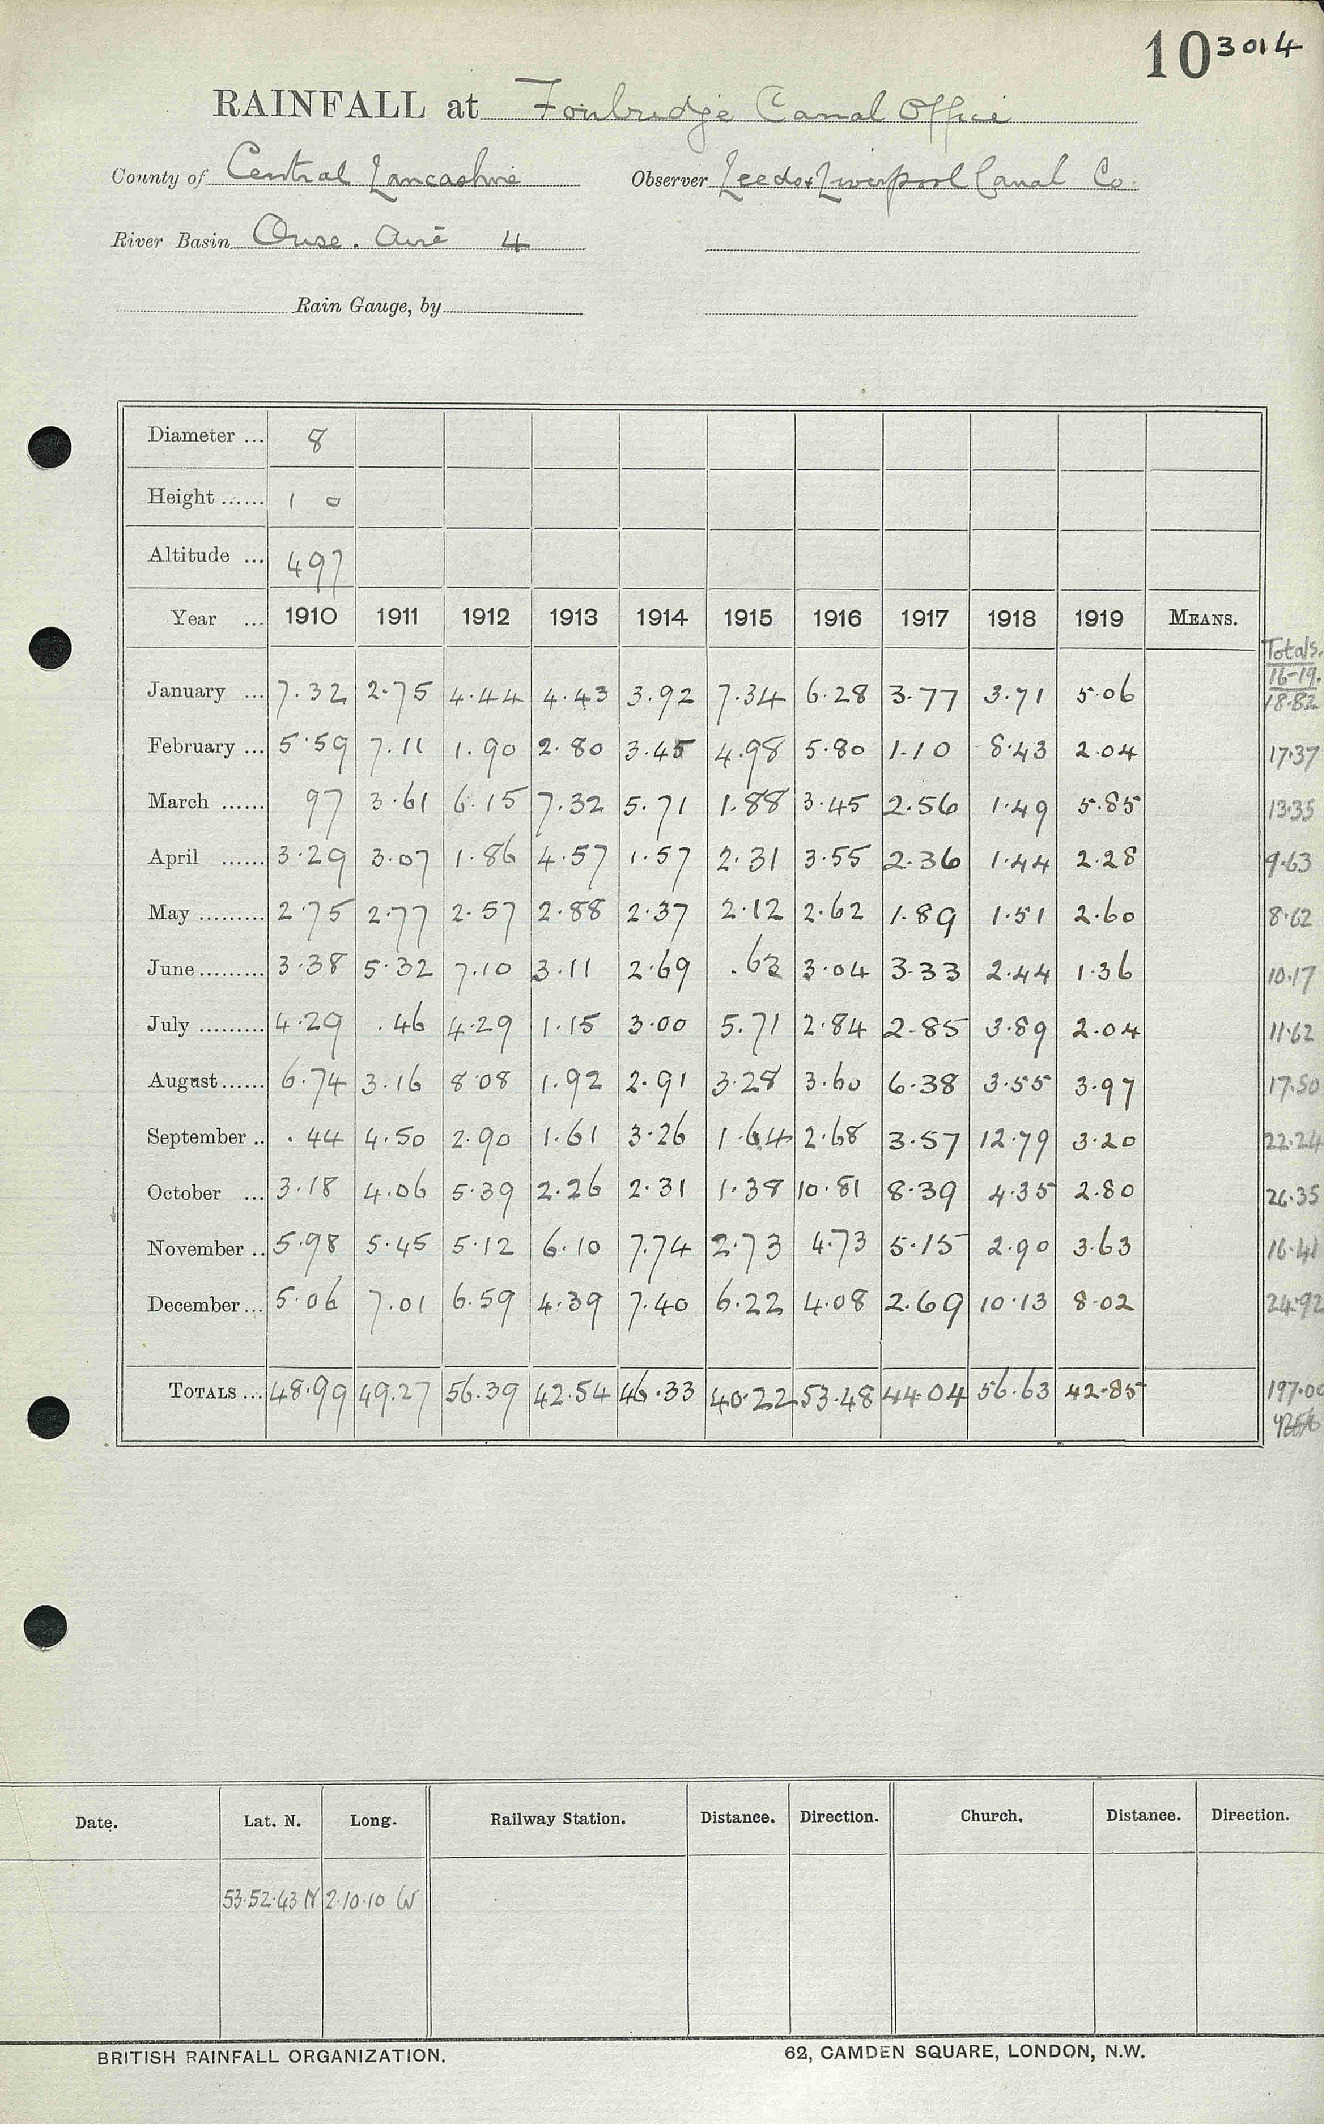 10 3014
RAINFALL at Foulridge Canal Office
County of Central Lancashire Observer Leeds & Liverpool Canal Co.
River Basin Ouse. Aire 4
Rain Gauge, by
Diameter ... 8
Height ...... 1 0
Altitude ... 497
Year ... 1910 1911 1912 1913 1914 1915 1916 1917 1918 1919 MEANS.
Totals.
16-19.
January ... 7.32 2.75 4.44 4.43 3.92 7.34 6.28 3.77 3.71 5.06 18.82
February ... 5.59 7.11 1.90 2.80 3.45 4.98 5.80 1.10 8.43 2.04 17.37
March ...... 97 3.61 6.15 7.32 5.71 1.88 3.45 2.56 1.49 5.85 13.35
April ...... 3.29 3.07 1.86 4.57 1.57 2.31 3.55 2.36 1.44 2.28 9.63
May ......... 2.75 2.77 2.57 2.88 2.37 2.12 2.62 1.89 1.51 2.60 8.62
June ......... 3.38 5.32 7.10 3.11 2.69 .63 3.04 3.33 2.44 1.36 10.17
July ......... 4.29 .46 4.29 1.15 3.00 5.71 2.84 2.85 3.89 2.04 11.62
August ...... 6.74 3.16 8.08 1.92 2.91 3.28 3.60 6.38 3.55 3.97 17.50
September .. .44 4.50 2.90 1.61 3.26 1.64 2.68 3.57 12.79 3.20 22.24
October ... 3.18 4.06 5.39 2.26 2.31 1.38 10.81 8.39 4.35 2.80 26.35
November .. 5.98 5.45 5.12 6.10 7.74 2.73 4.73 5.15 2.90 3.63 16.41
December ... 5.06 7.01 6.59 4.39 7.40 6.22 4.08 2.69 10.13 8.02 24.92
TOTALS ... 48.99 49.27 56.39 42.54 46.33 40.22 53.48 44.04 56.63 42.85 197.00
Date. Lat. N. Long. Railway Station. Distance. Direction. Church. Distance. Direction.
53.52.43 N 2.10.10 W
BRITISH RAINFALL ORGANIZATION. 62, CAMDEN SQUARE, LONDON, N.W.